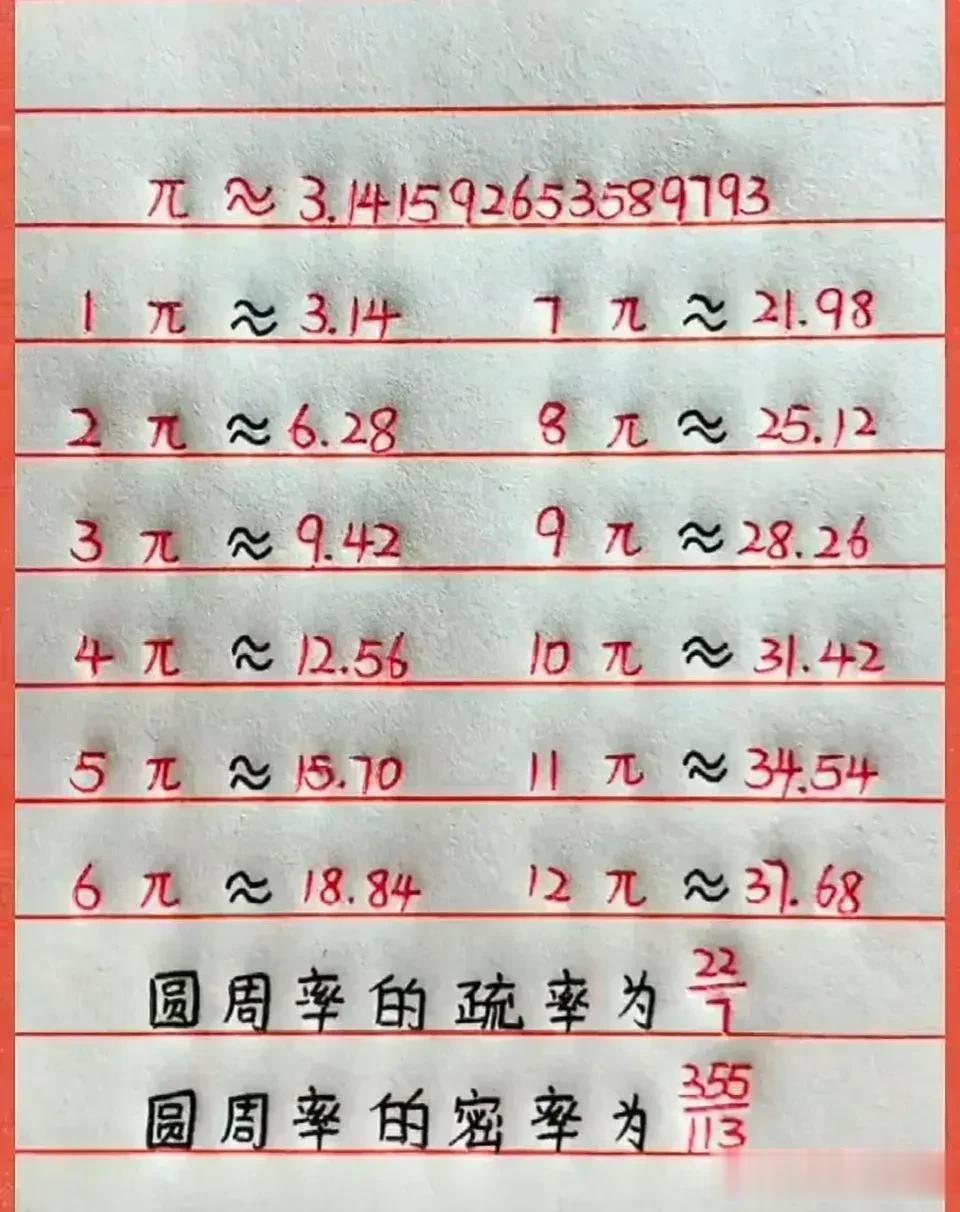 π ≈ 3.141592653589793
1 π ≈ 3.14 7 π ≈ 21.98
2 π ≈ 6.28 8 π ≈ 25.12
3 π ≈ 9.42 9 π ≈ 28.26
4 π ≈ 12.56 10 π ≈ 31.42
5 π ≈ 15.70 11 π ≈ 34.54
6 π ≈ 18.84 12 π ≈ 37.68
圆周率的疏率为 22/7
圆周率的密率为 355/113